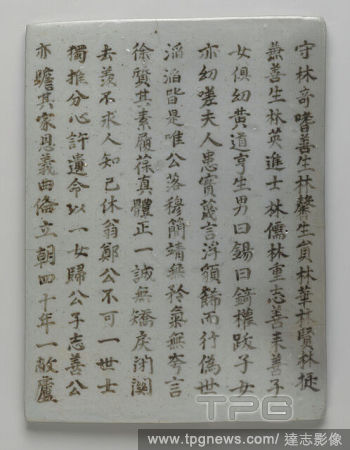 守林奇嗜善生林馨生貟林華林賢林促
燕善生林英進士林儒林重志善系善子
女俱幼黄道亨生男曰錫曰錡權踐子女
亦幼嗟夫人患實蔑言浮額餙而行偽世
滔滔皆是唯公落穆簡靖無矜氣無夸言
徐賢其素履葆真體正一誠無矯戾沕
去羨不求人知已休翁鄭公不可一世士
獨推分心許遺命以一女歸公子志善公
亦贍其家恩義曲俻立朝四十年一敝廬
TPG
www.tpgnews.com / 達志影像